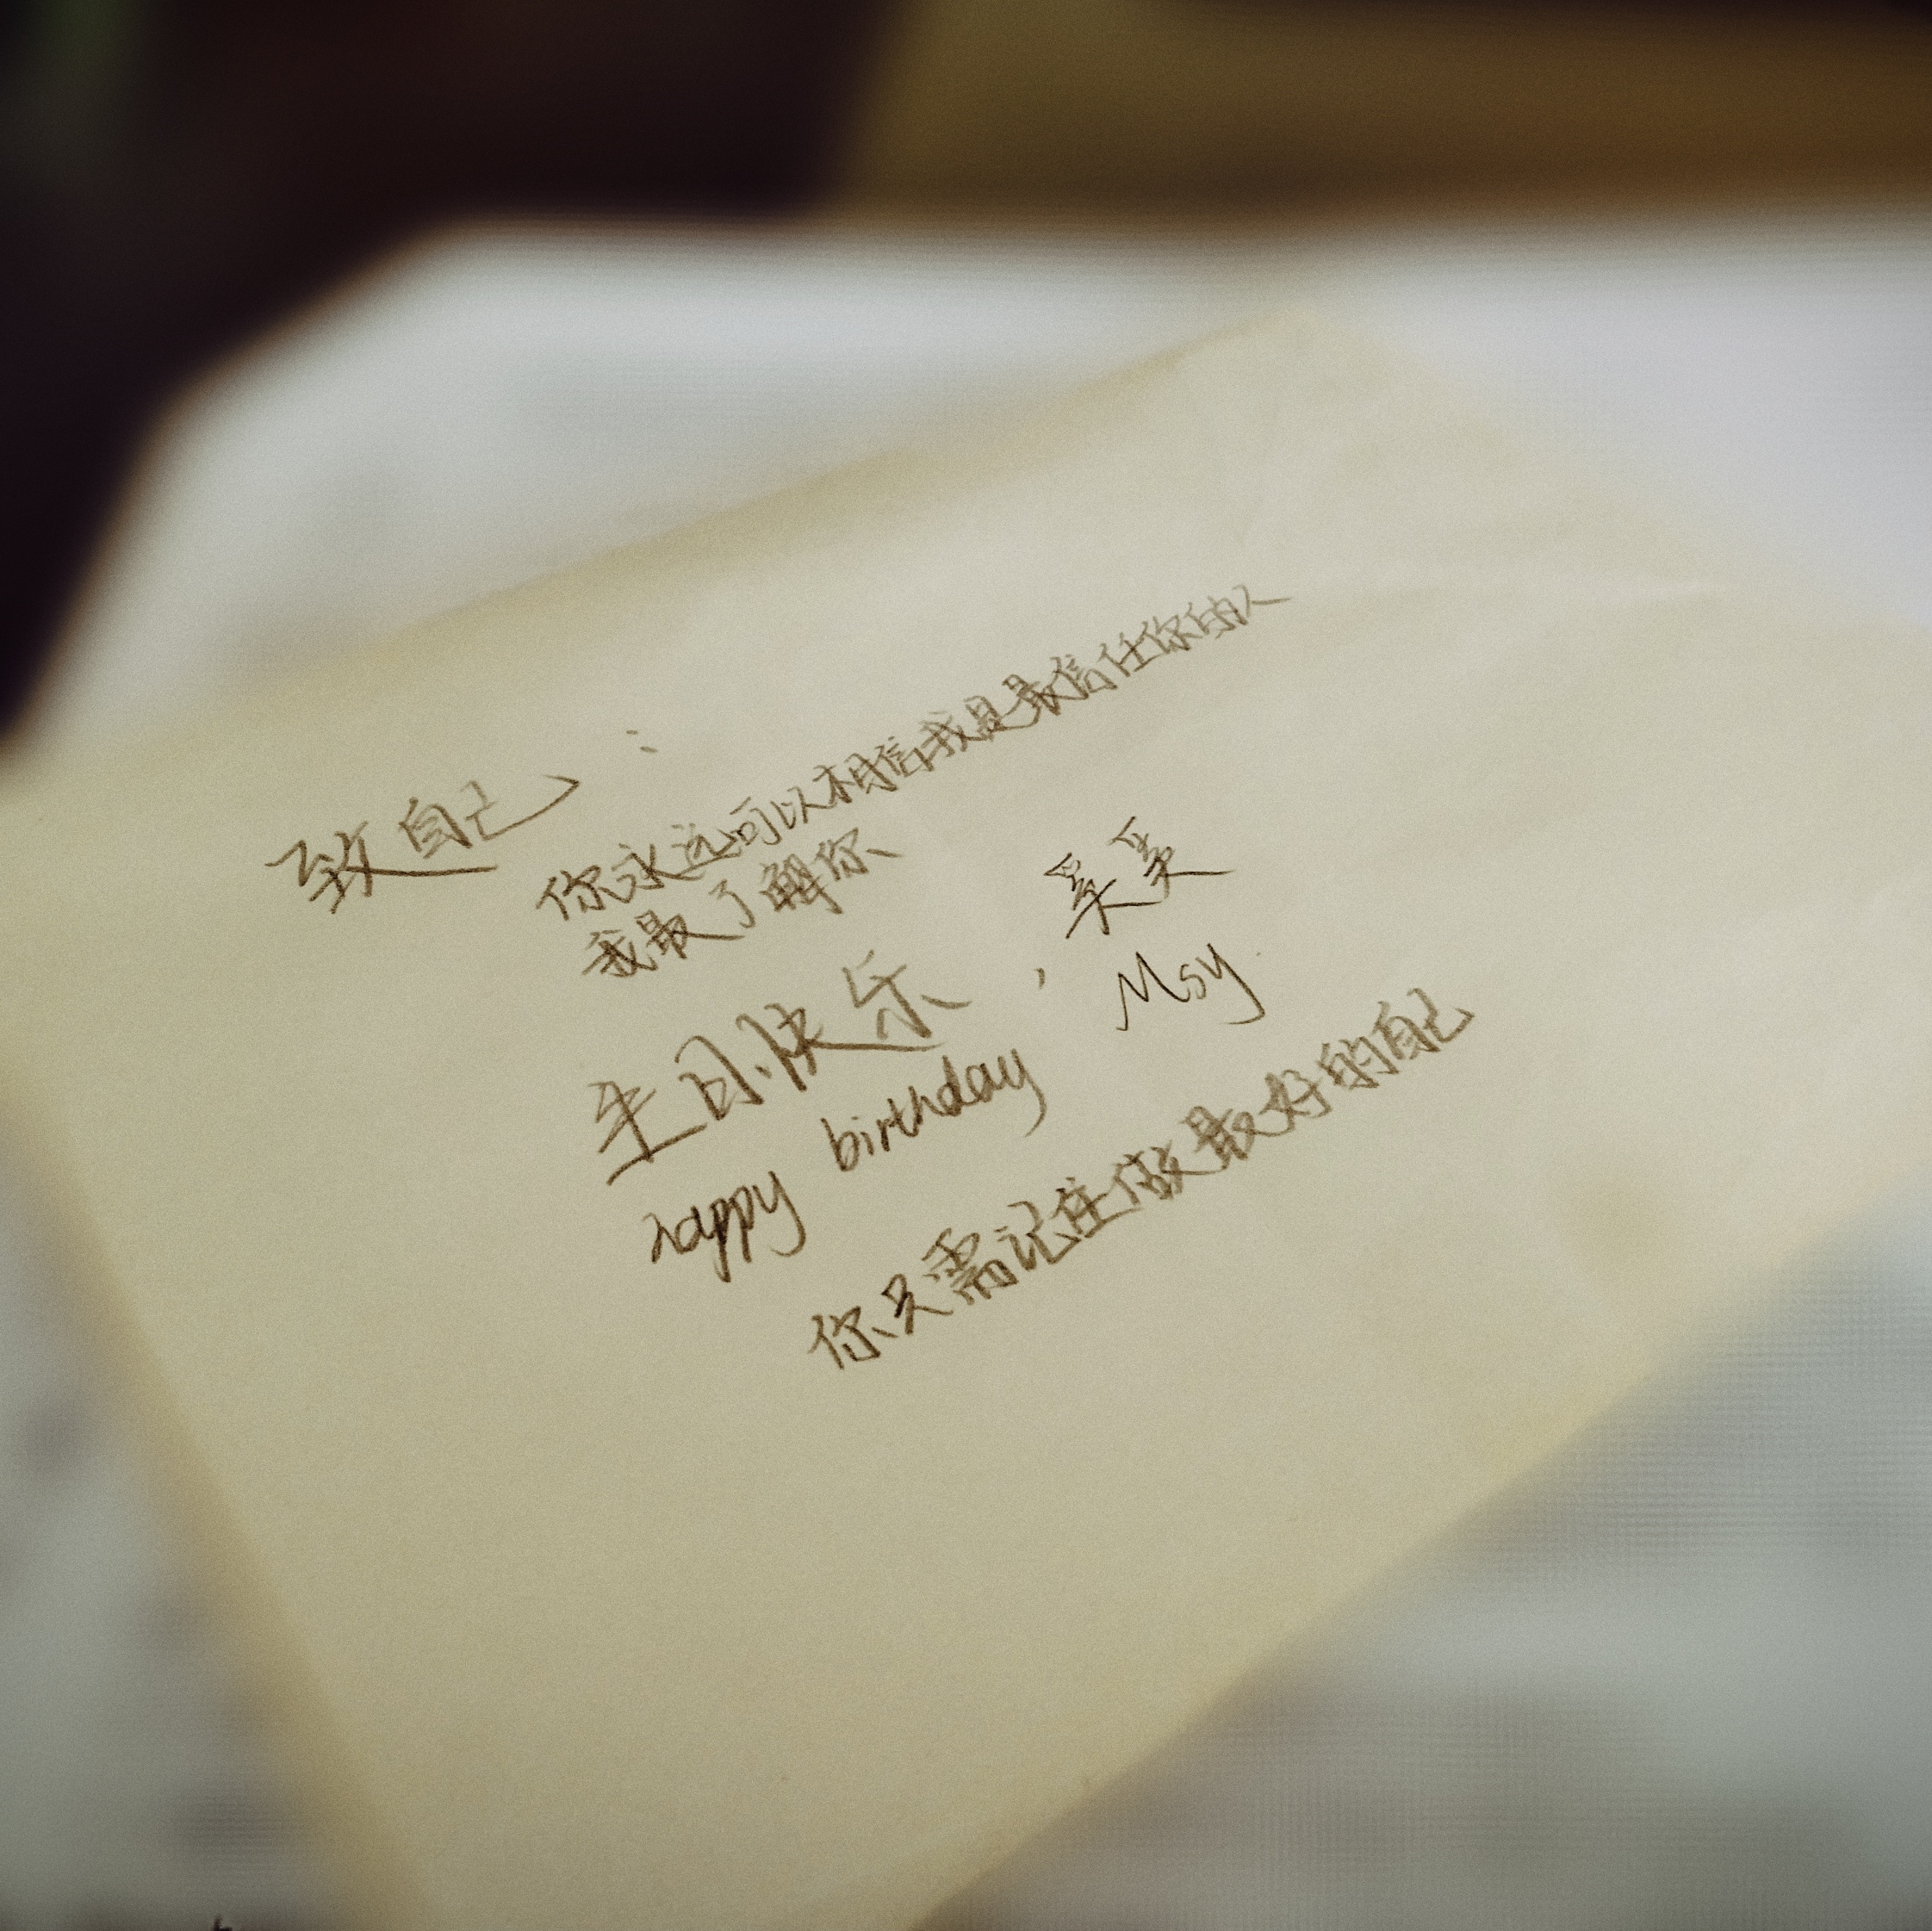 致自己:
你永远可以相信我是最信任你的人
我最了解你
生日快乐,
Msy
happy birthday
你只需记住做最好的自己